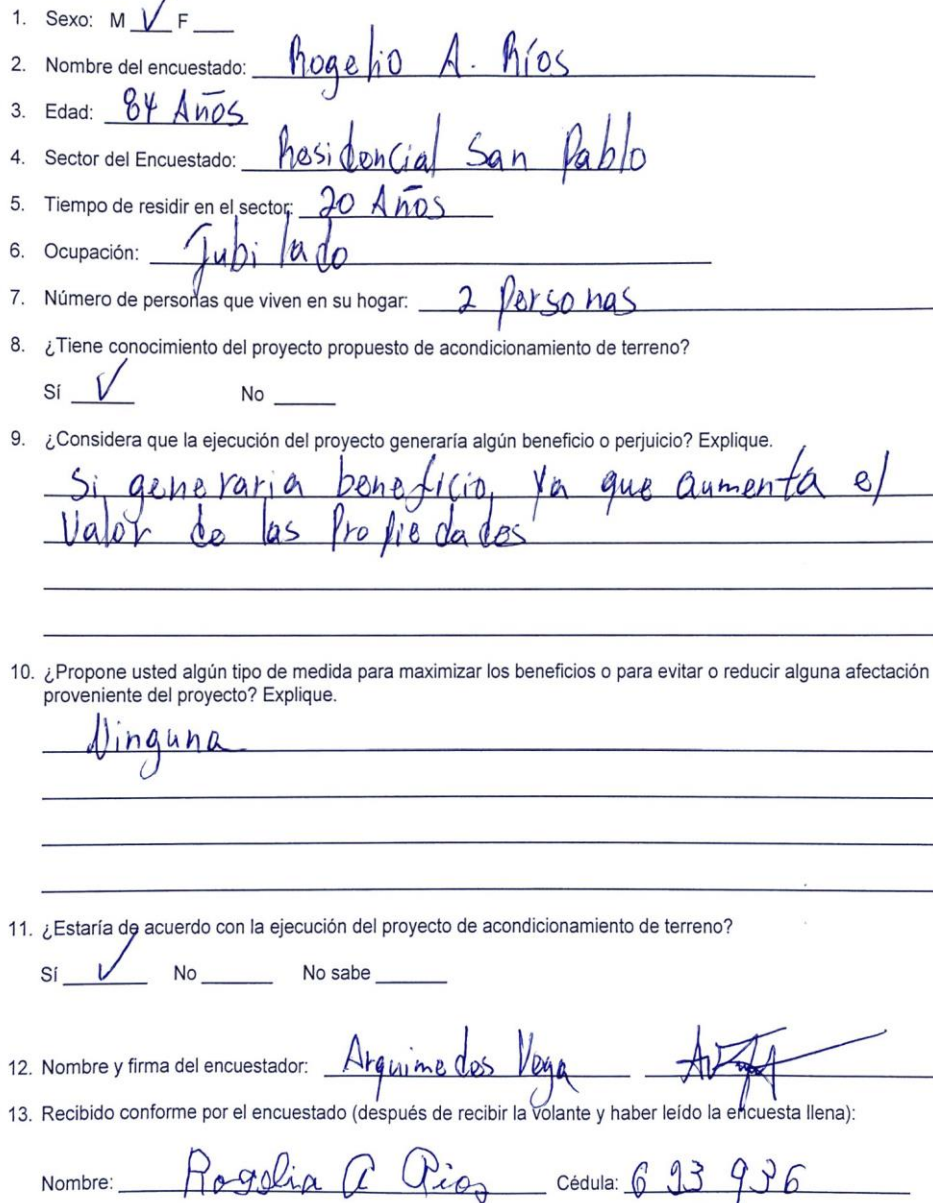 1. Sexo: M √ F ___
2. Nombre del encuestado: Rogelio A. Ríos
3. Edad: 84 Años
4. Sector del Encuestado: Residencial San Pablo
5. Tiempo de residir en el sector: 20 Años
6. Ocupación: Jubilado
7. Número de personas que viven en su hogar: 2 Personas
8. ¿Tiene conocimiento del proyecto propuesto de acondicionamiento de terreno?
Sí √ No ___
9. ¿Considera que la ejecución del proyecto generaría algún beneficio o perjuicio? Explique.
Si generaria beneficio, ya que aumenta el
Valor de las Propiedades
10. ¿Propone usted algún tipo de medida para maximizar los beneficios o para evitar o reducir alguna afectación
proveniente del proyecto? Explique.
Ninguna
11. ¿Estaría de acuerdo con la ejecución del proyecto de acondicionamiento de terreno?
Sí √ No ___ No sabe ___
12. Nombre y firma del encuestador: Arquimedes Vega
13. Recibido conforme por el encuestado (después de recibir la volante y haber leído la encuesta llena):
Nombre: Rogelio A Rios Cédula: 6 93 936